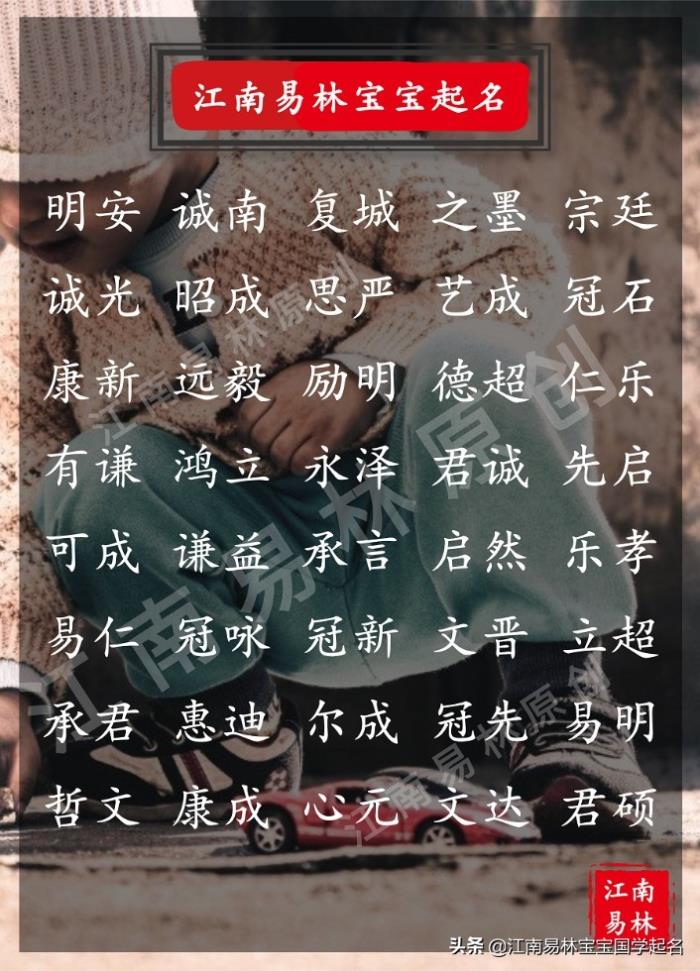 江南易林宝宝起名
明安 诚南 复城 之墨 宗廷
诚光 昭成 思严 艺成 冠石
康新 远毅 励明 德超 仁乐
有谦 鸿立 永泽 君诚 先启
可成 谦益 承言 启然 乐孝
易仁 冠咏 冠新 文晋 立超
承君 惠迪 尔成 冠先 易明
哲文 康成 心元 文达 君硕
江南易林原创
江南易林原创
江南易林原创
江南
易林
头条 @江南易林宝宝国学起名